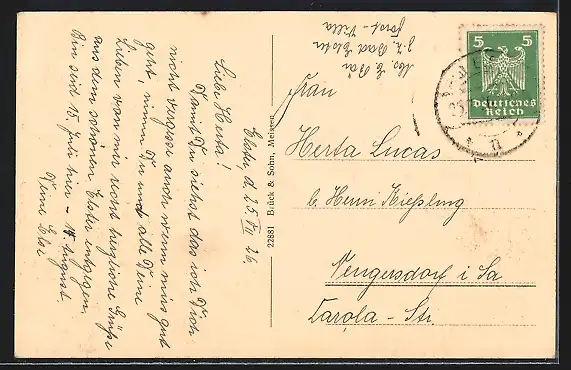 Elster d. 25. VII. 26.
Liebe Herta!
Damit Du siehst das ich Dich
nicht vergesse auch wenn mirs gut
geht nimm Du und alle Deine
Lieben von mir recht herzliche Grüße
aus dem schönen Elster entgegen.
Bin seid 15. Juli hier – 14 August.
Deine Else
22881 Brück & Sohn, Meissen
Abs. E
z. Z. Bad Elster
Forst-Villa
Frau
Herta Lucas
b. Herrn Kießling
Neugersdorf i Sa
Carola-Str.
5 5
Deutsches
Reich